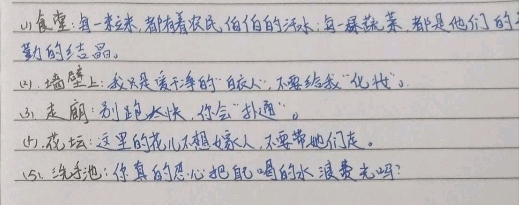 (1) 食堂:每一粒米,都有着农民伯伯的汗水;每一棵蔬菜,都是他们的
勤的结晶。
(2). 墙壁上:我只是爱干净的“白衣人”,不要给我“化妆”。
(3). 走廊:别跑太快,你会“扑通”。
(4). 花坛:这里的花儿不想嫁人,不要带她们走。
(5). 洗手池:你真的忍心把自己喝的水浪费光吗?